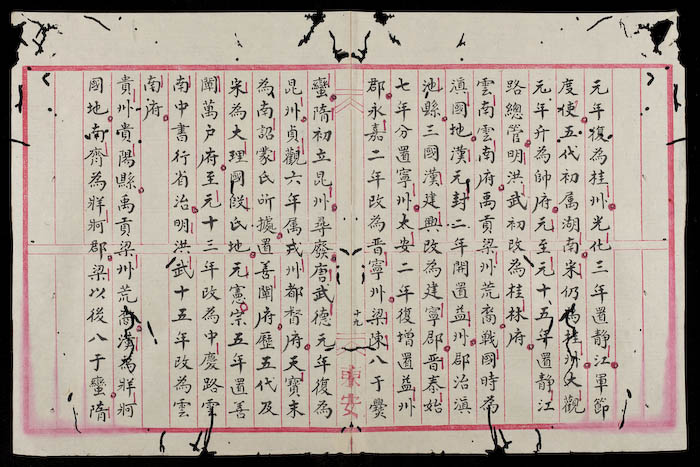 元年復為桂州光化三年置靜江軍節
度使五代初屬湖南宋仍為桂州大觀
元年升為帥府元至元十五年置靜江
路總管明洪武初改為桂林府
雲南雲南府禹貢梁州荒裔戰國時為
滇國地漢元封二年開置益州郡治滇
池縣三國漢建興改為建寧郡晉泰始
七年分置寧州太安二年復增置益州
郡永嘉二年改為晉寧州梁陳入于爨
十九
東安
蠻隋初立昆州尋廢唐武德元年復為
昆州貞觀六年属戎州都督府天寶末
為南詔蒙氏所據置善闡府歷五代及
宋為大理國段氏地元憲宗五年置善
闡萬户府至元十三年改為中慶路雲
南中書行省治明洪武十五年改為雲
南府
貴州貴陽縣禹貢梁州荒裔漢為牂牁
國地南齊為牂牁郡梁以後入于蠻隋